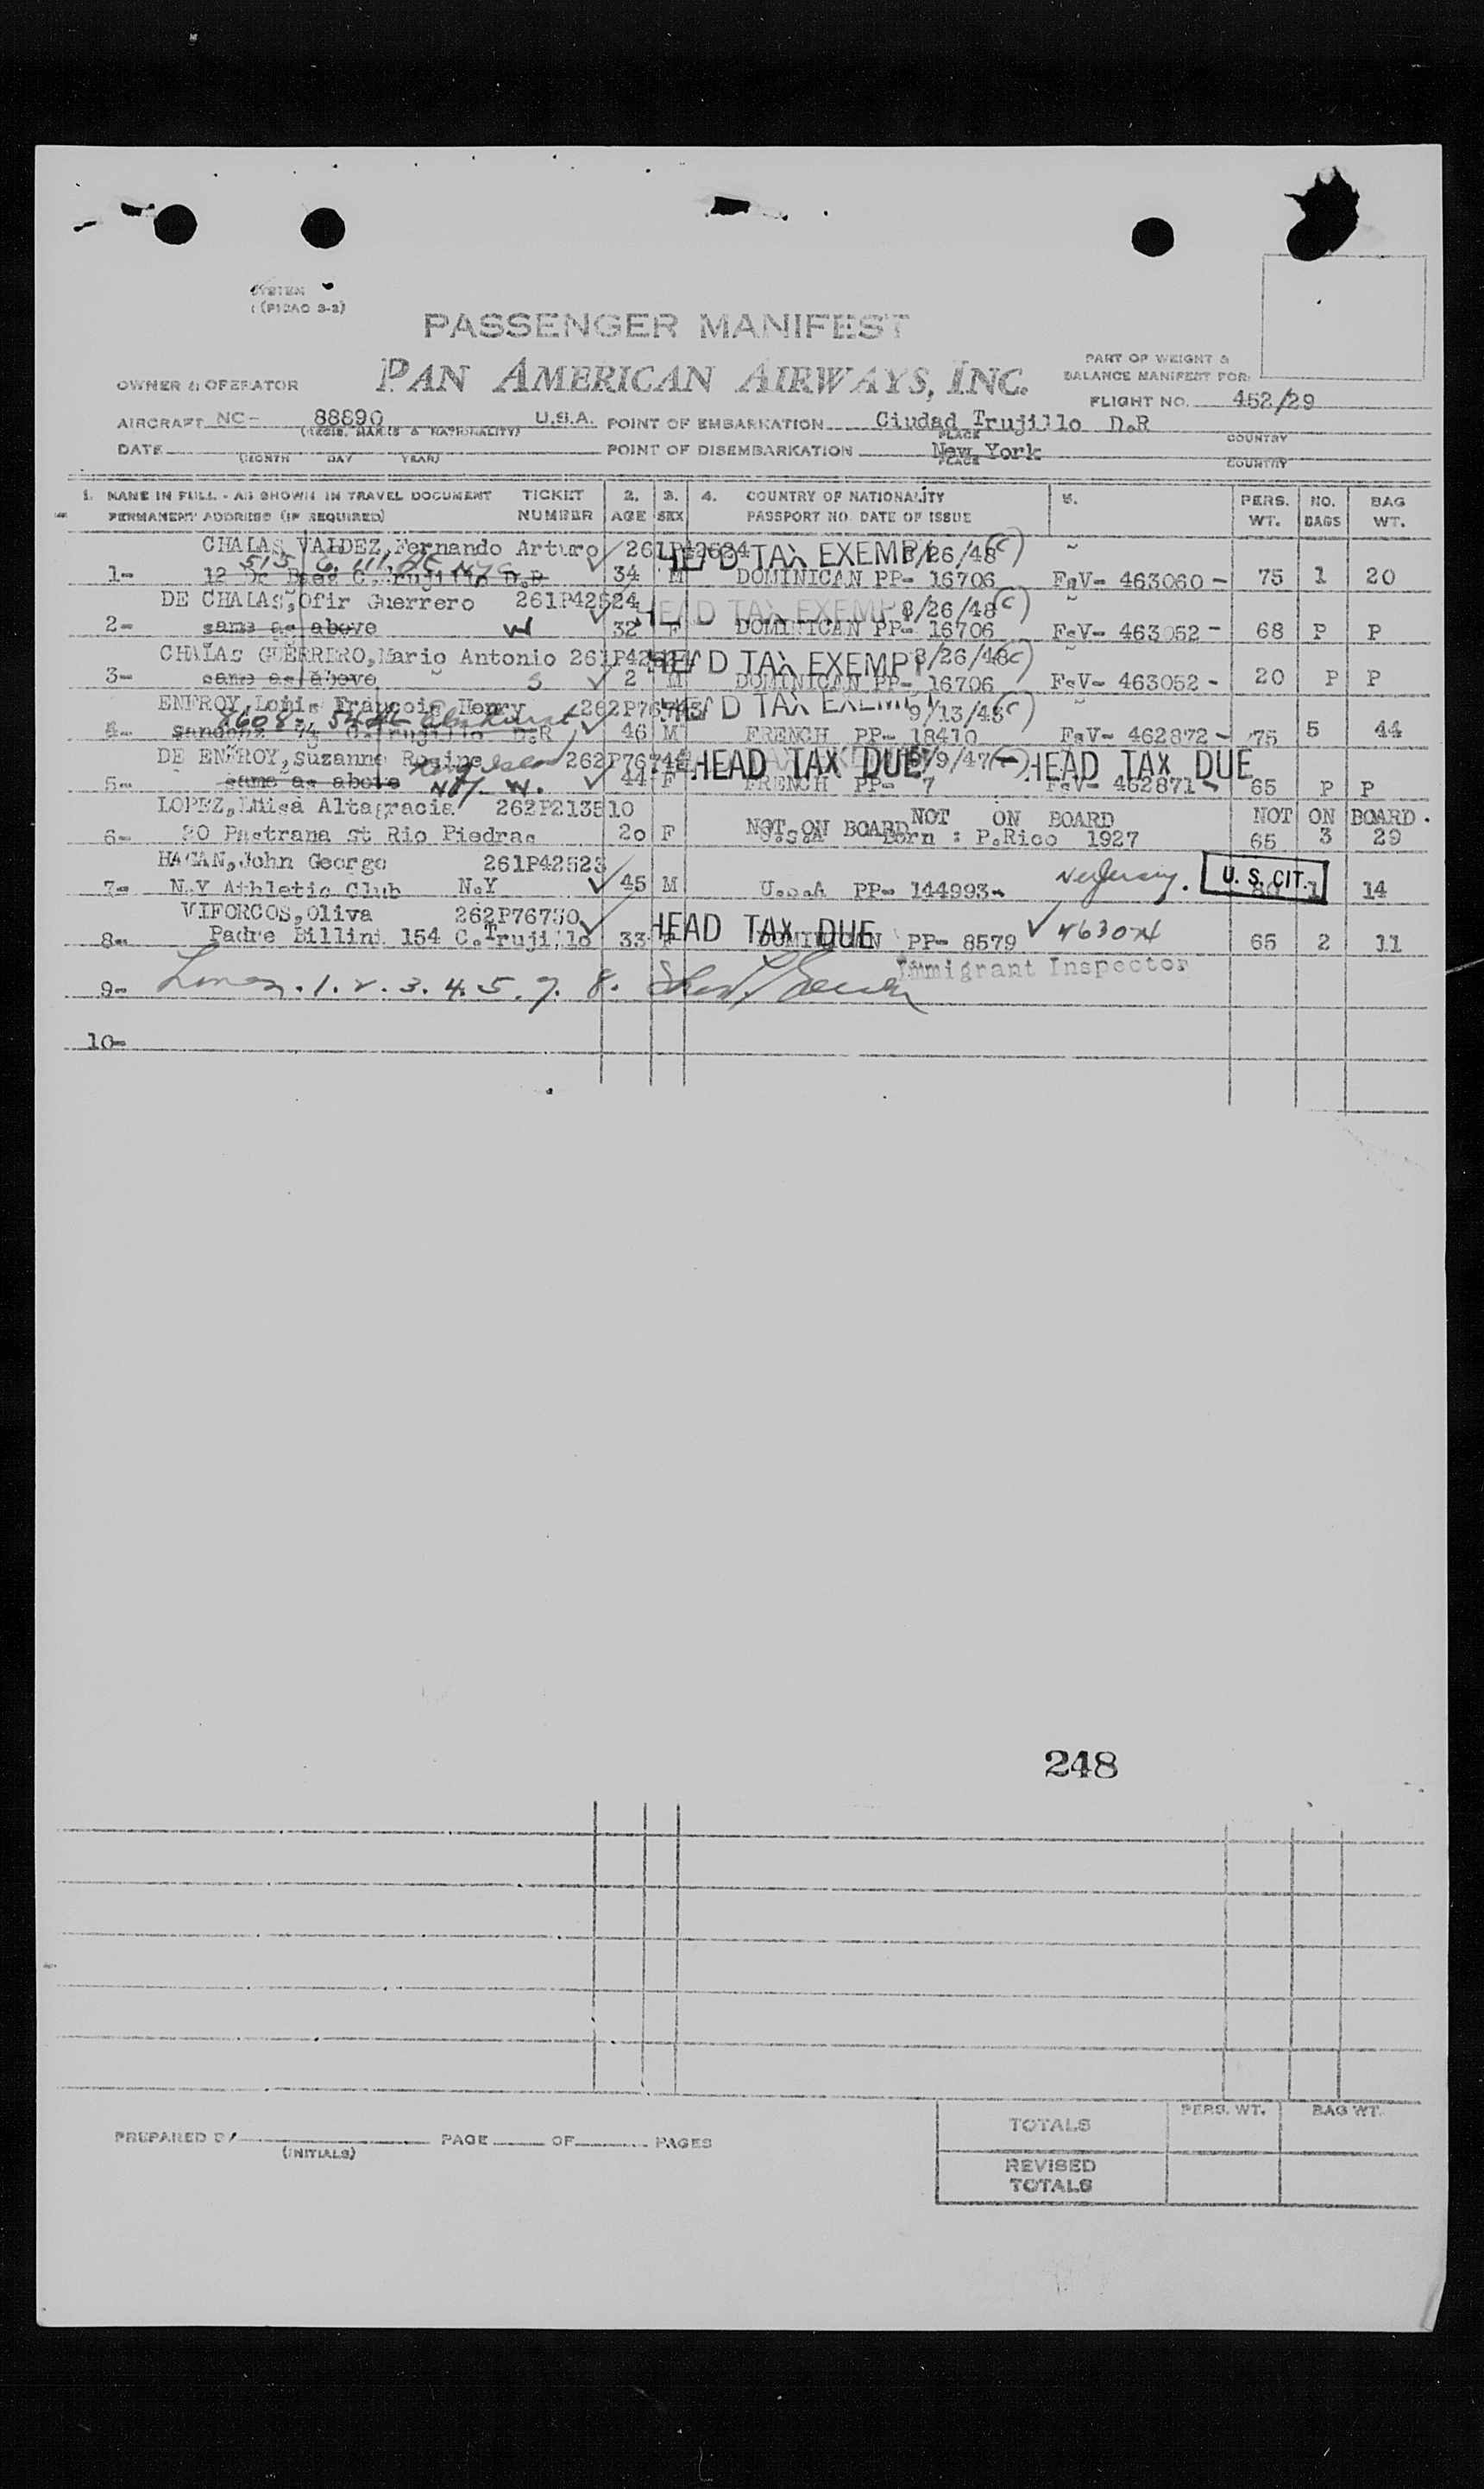 SYSTEM
(PICAO 3-2)
PASSENGER MANIFEST
PAN AMERICAN AIRWAYS, INC.
OWNER & OPERATOR
PART OF WEIGHT &
BALANCE MANIFEST FOR:
FLIGHT NO. 452/29
AIRCRAFT NC- 88890 U.S.A. POINT OF EMBARKATION Ciudad Trujillo D.R
(REGIS. MARKS & NATIONALITY) PLACE COUNTRY
DATE POINT OF DISEMBARKATION New York
(MONTH DAY YEAR) PLACE COUNTRY
1. NAME IN FULL - AS SHOWN IN TRAVEL DOCUMENT TICKET 2. 3. 4. COUNTRY OF NATIONALITY 5. PERS. NO. BAG
PERMANENT ADDRESS (IF REQUIRED) NUMBER AGE SEX PASSPORT NO. DATE OF ISSUE WT. BAGS WT.
CHALAS VALDEZ, Fernando Arturo 261P42524 HEAD TAX EXEMPT 8/26/48 (c)
515 W. 111, St NYC
1- 12 Dr Baez C. Trujillo D.R 34 M DOMINICAN PP- 16706 FsV- 463060 - 75 1 20
DE CHALAS, Ofir Guerrero 261P42524 HEAD TAX EXEMPT 8/26/48 (c)
2- same as above W 32 F DOMINICAN PP- 16706 FsV- 463052 - 68 P P
CHALAS GUERRERO, Mario Antonio 261P42524 HEAD TAX EXEMPT 8/26/48 (c)
3- same as above S 2 M DOMINICAN PP- 16706 FsV- 463052 - 20 P P
ENFROY, Louis François Henry 262P76743 HEAD TAX EXEMPT 9/13/48 (c)
8608- 54th Elmhurst
4- 74 C. Trujillo D.R 46 M FRENCH PP- 18410 FsV- 462872 - 75 5 44
DE ENFROY, Suzanne Rosine 262P76744 HEAD TAX DUE 9/47 HEAD TAX DUE
Long Island
5- same as above N.Y. W. 44 F FRENCH PP- 7 FsV- 462871 - 65 P P
LOPEZ, Luisa Altagracia 262P213510 NOT ON BOARD NOT ON BOARD.
NOT ON BOARD
6- 20 Pastrana St Rio Piedras 20 F U.S.A Born : P.Rico 1927 65 3 29
HAGAN, John George 261P42523
7- N.Y Athletic Club N.Y 45 M U.S.A PP- 144993- New Jersey. U. S. CIT. 80 1 14
VIFORCOS, Oliva 262P76750 HEAD TAX DUE
8- Padre Billini 154 C. Trujillo 33 F DOMINICAN PP- 8579 65 2 11
Immigrant Inspector
9- Lines. 1. 2. 3. 4. 5. 7. 8.
10-
248
PREPARED BY PAGE OF PAGES
(INITIALS)
PERS. WT. BAG WT.
TOTALS
REVISED
TOTALS